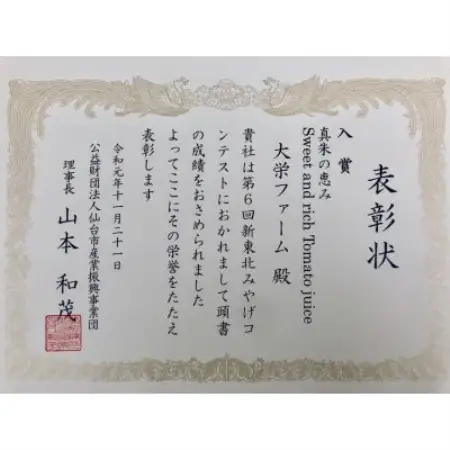 表彰状
入賞
真朱の恵み
Sweet and rich Tomato juice
大栄ファーム 殿
貴社は第6回新東北みやげコ
ンテストにおかれまして頭書
の成績をおさめられました
よってここにその栄誉をたたえ
表彰します
令和元年十一月二十一日
公益財団法人仙台市産業振興事業団
理事長 山本 和茂